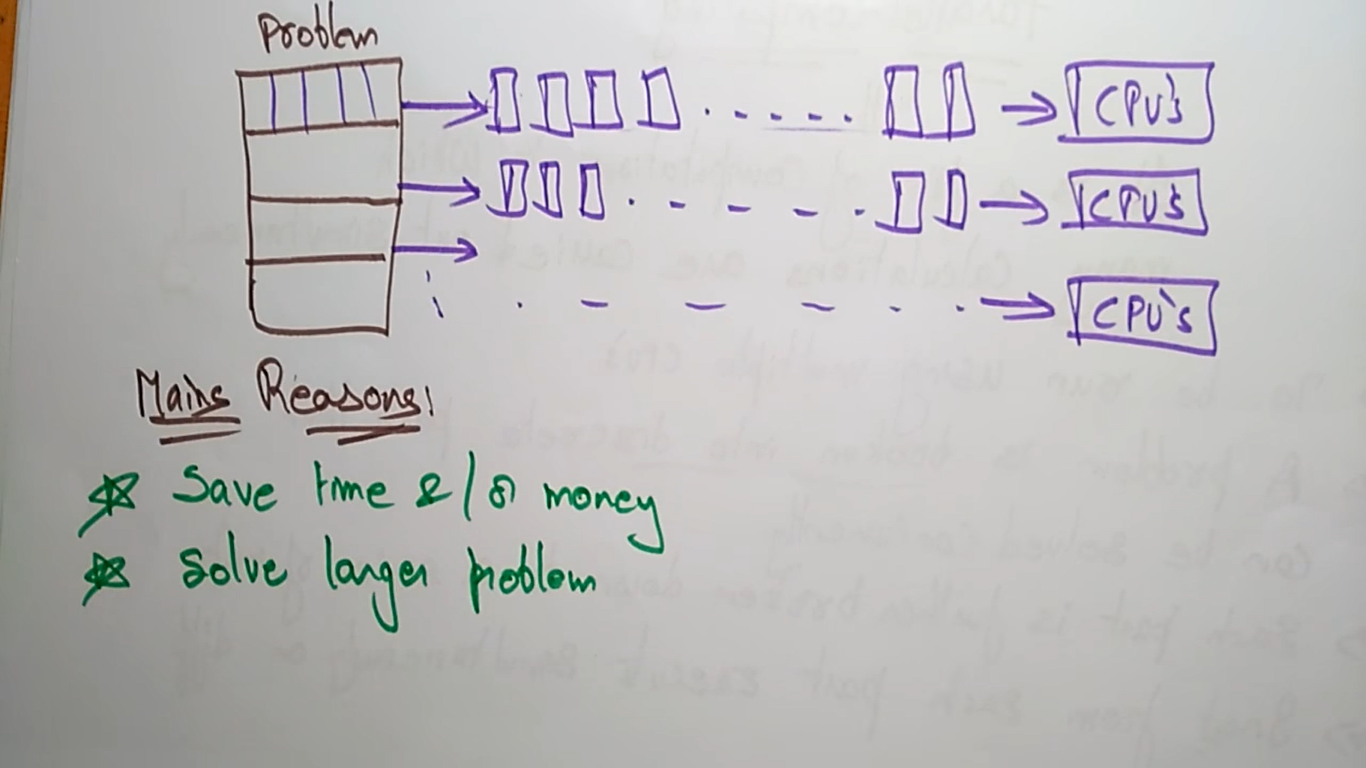 Problem
CPU's
CPU's
CPU's
Mains Reasons:
Save time & / or money
Solve larger problem